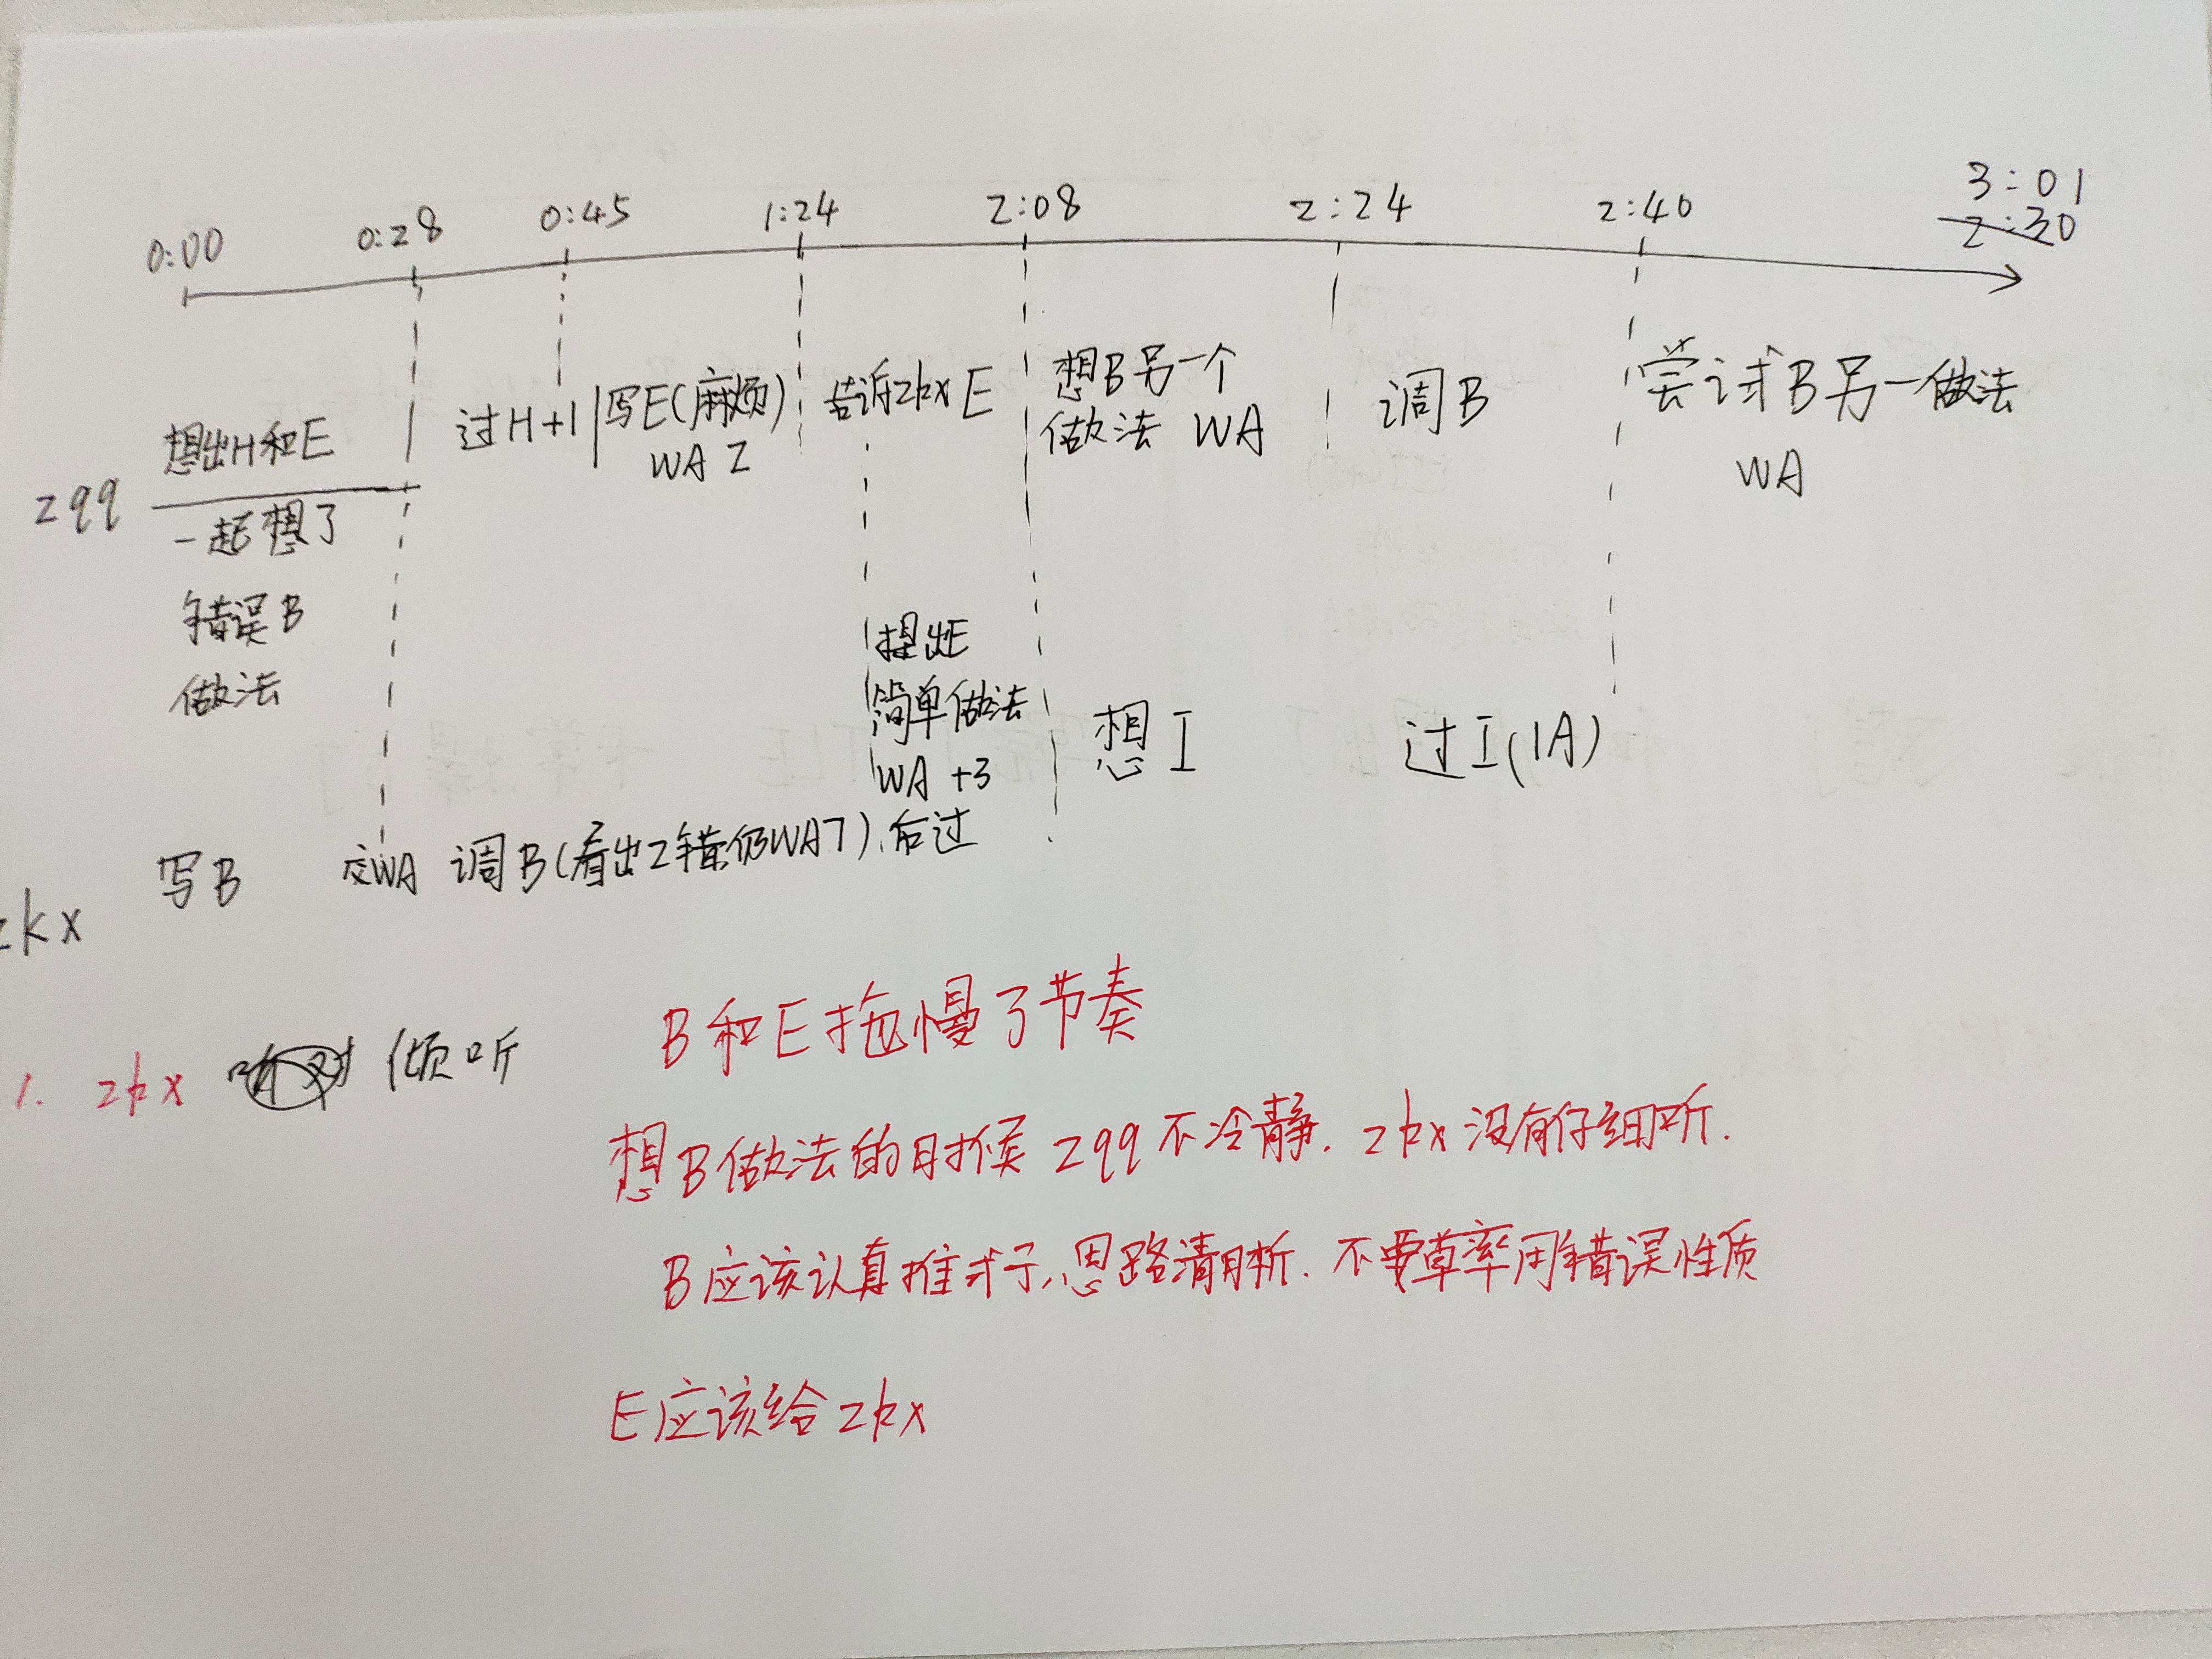 0:00 0:28 0:45 1:24 2:08 2:24 2:40 3:01
2:30
zqq
想出H和E
一起想了
错误B
做法
过H+1
写E(麻烦)
WA 2
告诉zkx E
想B另一个
做法 WA
调B
尝试B另一做法
WA
想出E
简单做法
WA +3
后过
想I
过I(1A)
zkx
写B
交WA 调B(看出2错仍WA7)
1. zkx 倾听
B和E拖慢了节奏
想B做法的时候 zqq不冷静. zkx没有仔细听.
B应该认真推式子,思路清晰. 不要草率用错误性质
E应该给zkx